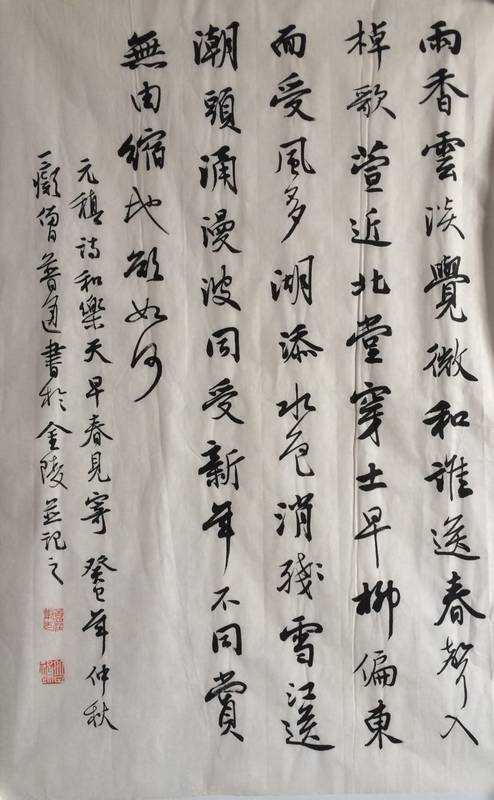 雨香雲淡覺微和誰送春聲入
棹歌萱近北堂穿土早柳偏東
而受風多湖添水色消殘雪江送
潮頭涌漫波同受新年不同賞
無由縮地欲如何
元稹詩和樂天早春見寄 癸巳年仲秋
一癡僧普通書於金陵並記之